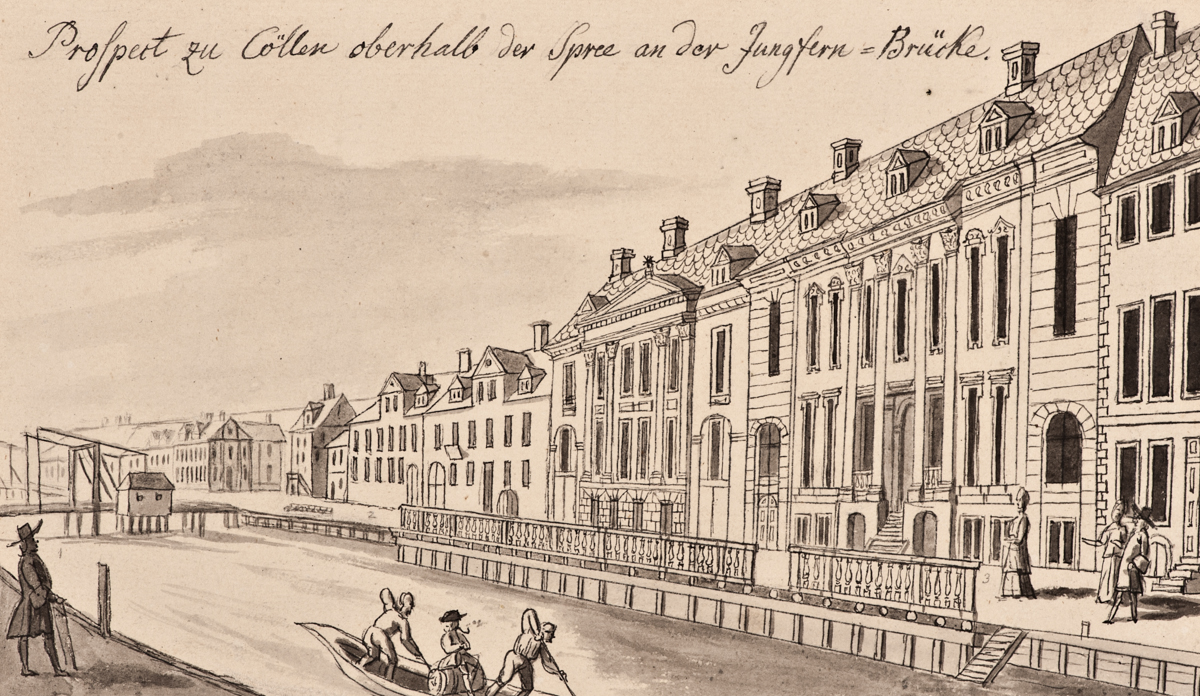 Prospect zu Cöllen oberhalb der Spree an der Jungfern=Brücke.
1
2
3